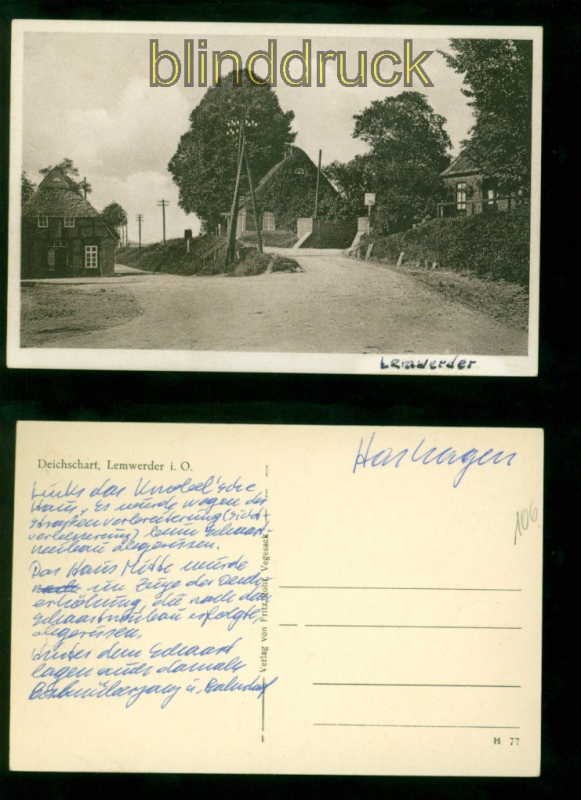 blinddruck
Lemwerder
Deichschart, Lemwerder i. O.
Harhagen
106
Links das Knobel'sche
Haus, Es wurde wegen der
Straßenverbreiterung (Sicht
verbesserung) beim Schaart-
neubau abgerissen.
Das Haus Mitte wurde
im Zuge der Deich
erhöhung die nach dem
Schaartneubau erfolgte
abgerissen.
Hinter dem Schaart
lagen auch damals
u. Bahnhof
Verlag von Fritz Vegesack
H 77